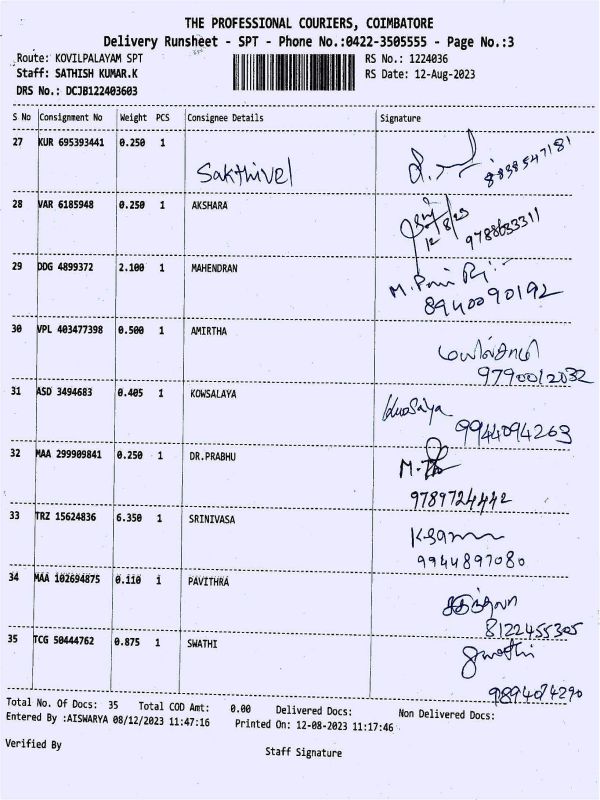 THE PROFESSIONAL COURIERS, COIMBATORE
Delivery Runsheet - SPT - Phone No.:0422-3505555 - Page No.:3
Route: KOVILPALAYAM SPT
RS No.: 1224036
Staff: SATHISH KUMAR.K
RS Date: 12-Aug-2023
DRS No.: DCJB122403603
S No Consignment No Weight PCS Consignee Details Signature
27 KUR 695393441 0.250 1 Sakthivel 8838547181
28 VAR 6185948 0.250 1 AKSHARA
12/8/23 9788633311
29 DDG 4899372 2.100 1 MAHENDRAN
8940090192
30 VPL 403477398 0.500 1 AMIRTHA
மயில்சாமி
9790012032
31 ASD 3494683 0.405 1 KOWSALAYA
9944094263
32 MAA 299909841 0.250 1 DR.PRABHU
9789724442
33 TRZ 15624836 6.350 1 SRINIVASA
9944897080
34 MAA 102694875 0.110 1 PAVITHRA
8122455305
35 TCG 50444762 0.875 1 SWATHI
Swathi
9894074290
Total No. Of Docs: 35 Total COD Amt: 0.00 Delivered Docs: Non Delivered Docs:
Entered By :AISWARYA 08/12/2023 11:47:16 Printed On: 12-08-2023 11:17:46
Verified By
Staff Signature